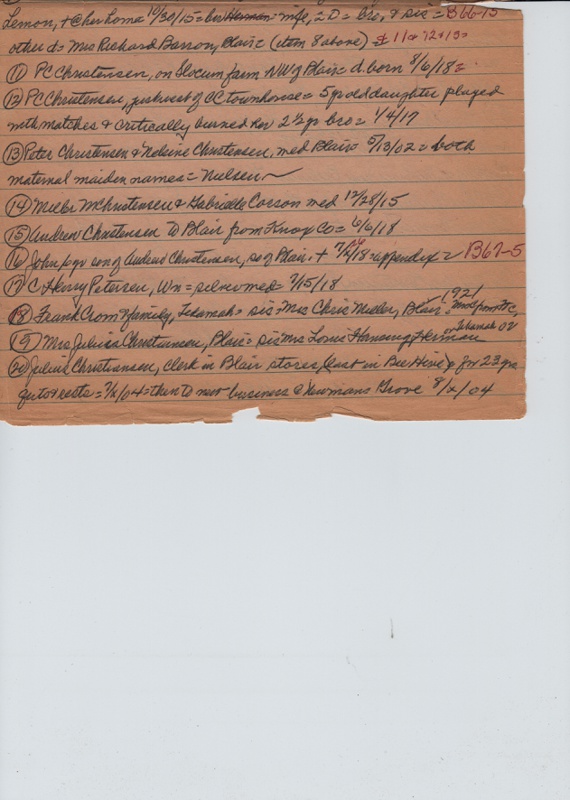 Lemon, + @ her home 10/30/15 = bur Herman = wife, 2 D = bro, & sis = B66-15
other d = Mrs Richard Barron, Blair = (item 8 above) # 11 & 12 & 13 =
(11) PC Christensen, on Slocum farm NW of Blair = d. born 8/6/18 =
(12) PC Christensen, just west of CC townhouse = 5 yr old daughter played
with matches & critically burned her 2½ yr bro = 1/4/17
(13) Peter Christensen & Christensen, med Blair = 5/13/02 = both
maternal maiden names = Nielsen
(14) Christensen & Gabrielle Cosson med 12/28/15
(15) Andrew Christensen to Blair from Knox Co = 6/6/18
(16) John, son of Andrew Christensen, so of Blair, + = appendix = B67-5
(17) C Harry Petersen, Wn = med 7/15/18
(18) Frank Crom & family, Tekamah = sis = Mrs Chris Miller, Blair = 1921
(19) Mrs Julius Christiansen, Blair = sis Mrs Louis Hansing, Herman
Tekamah
(20) Julius Christiansen, clerk in Blair stores, (last in Bee Hive) for 23 yrs
quits & rests = 7/x/04 = then to new business @ Newmans Grove 8/x/04